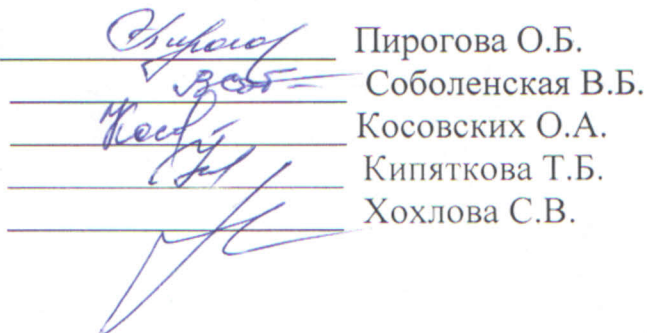 Пирогова О.Б.
Соболенская В.Б.
Косовских О.А.
Кипяткова Т.Б.
Хохлова С.В.